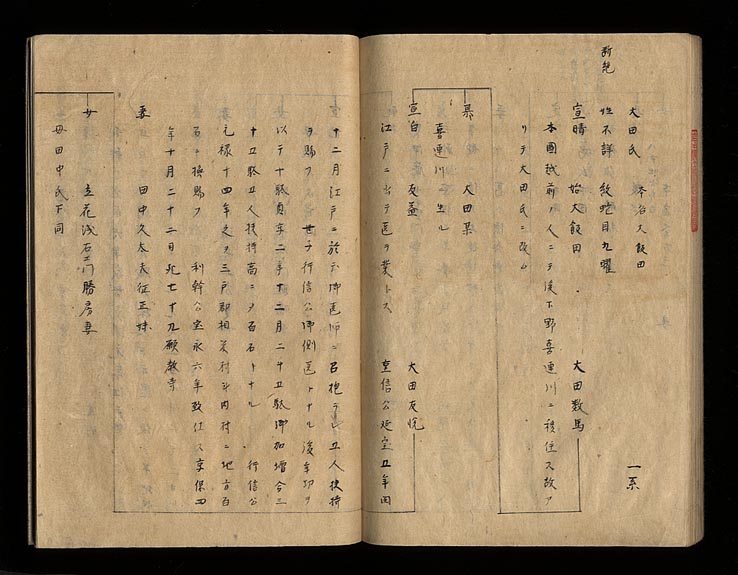 断絶
大田氏 本名大飯田 一系
姓不詳 紋蛇目九曜
宣晴 始大飯田 大田数馬
本国越前ノ人ニテ後下野喜連川ニ移住ス改メ
リテ大田氏ニ改ム
某 大田某
喜連川ニ生ル
宣白 友益 大田友悦
江戸ニ出テ医ヲ業トス 重信公延宝五年閏
十二月江戸ニ於テ御医師ニ召抱ラレ五人扶持
ヲ賜フ 世子行信公御側医トナル後年功ヲ
以テ十駄貞享二年十二月二十五駄御加増合三
十五駄五人扶持高ニメ百石トナル 行信公
元禄十四年之ヲ三戸郡相米村斗内村ニ地方百
石ニ換賜フ 利幹公宝永六年致仕ス享保四
年十月二十二日死七十九願教寺
妻 田中久太夫征正妹
女 立花浅右エ門勝房妻
母田中氏下同